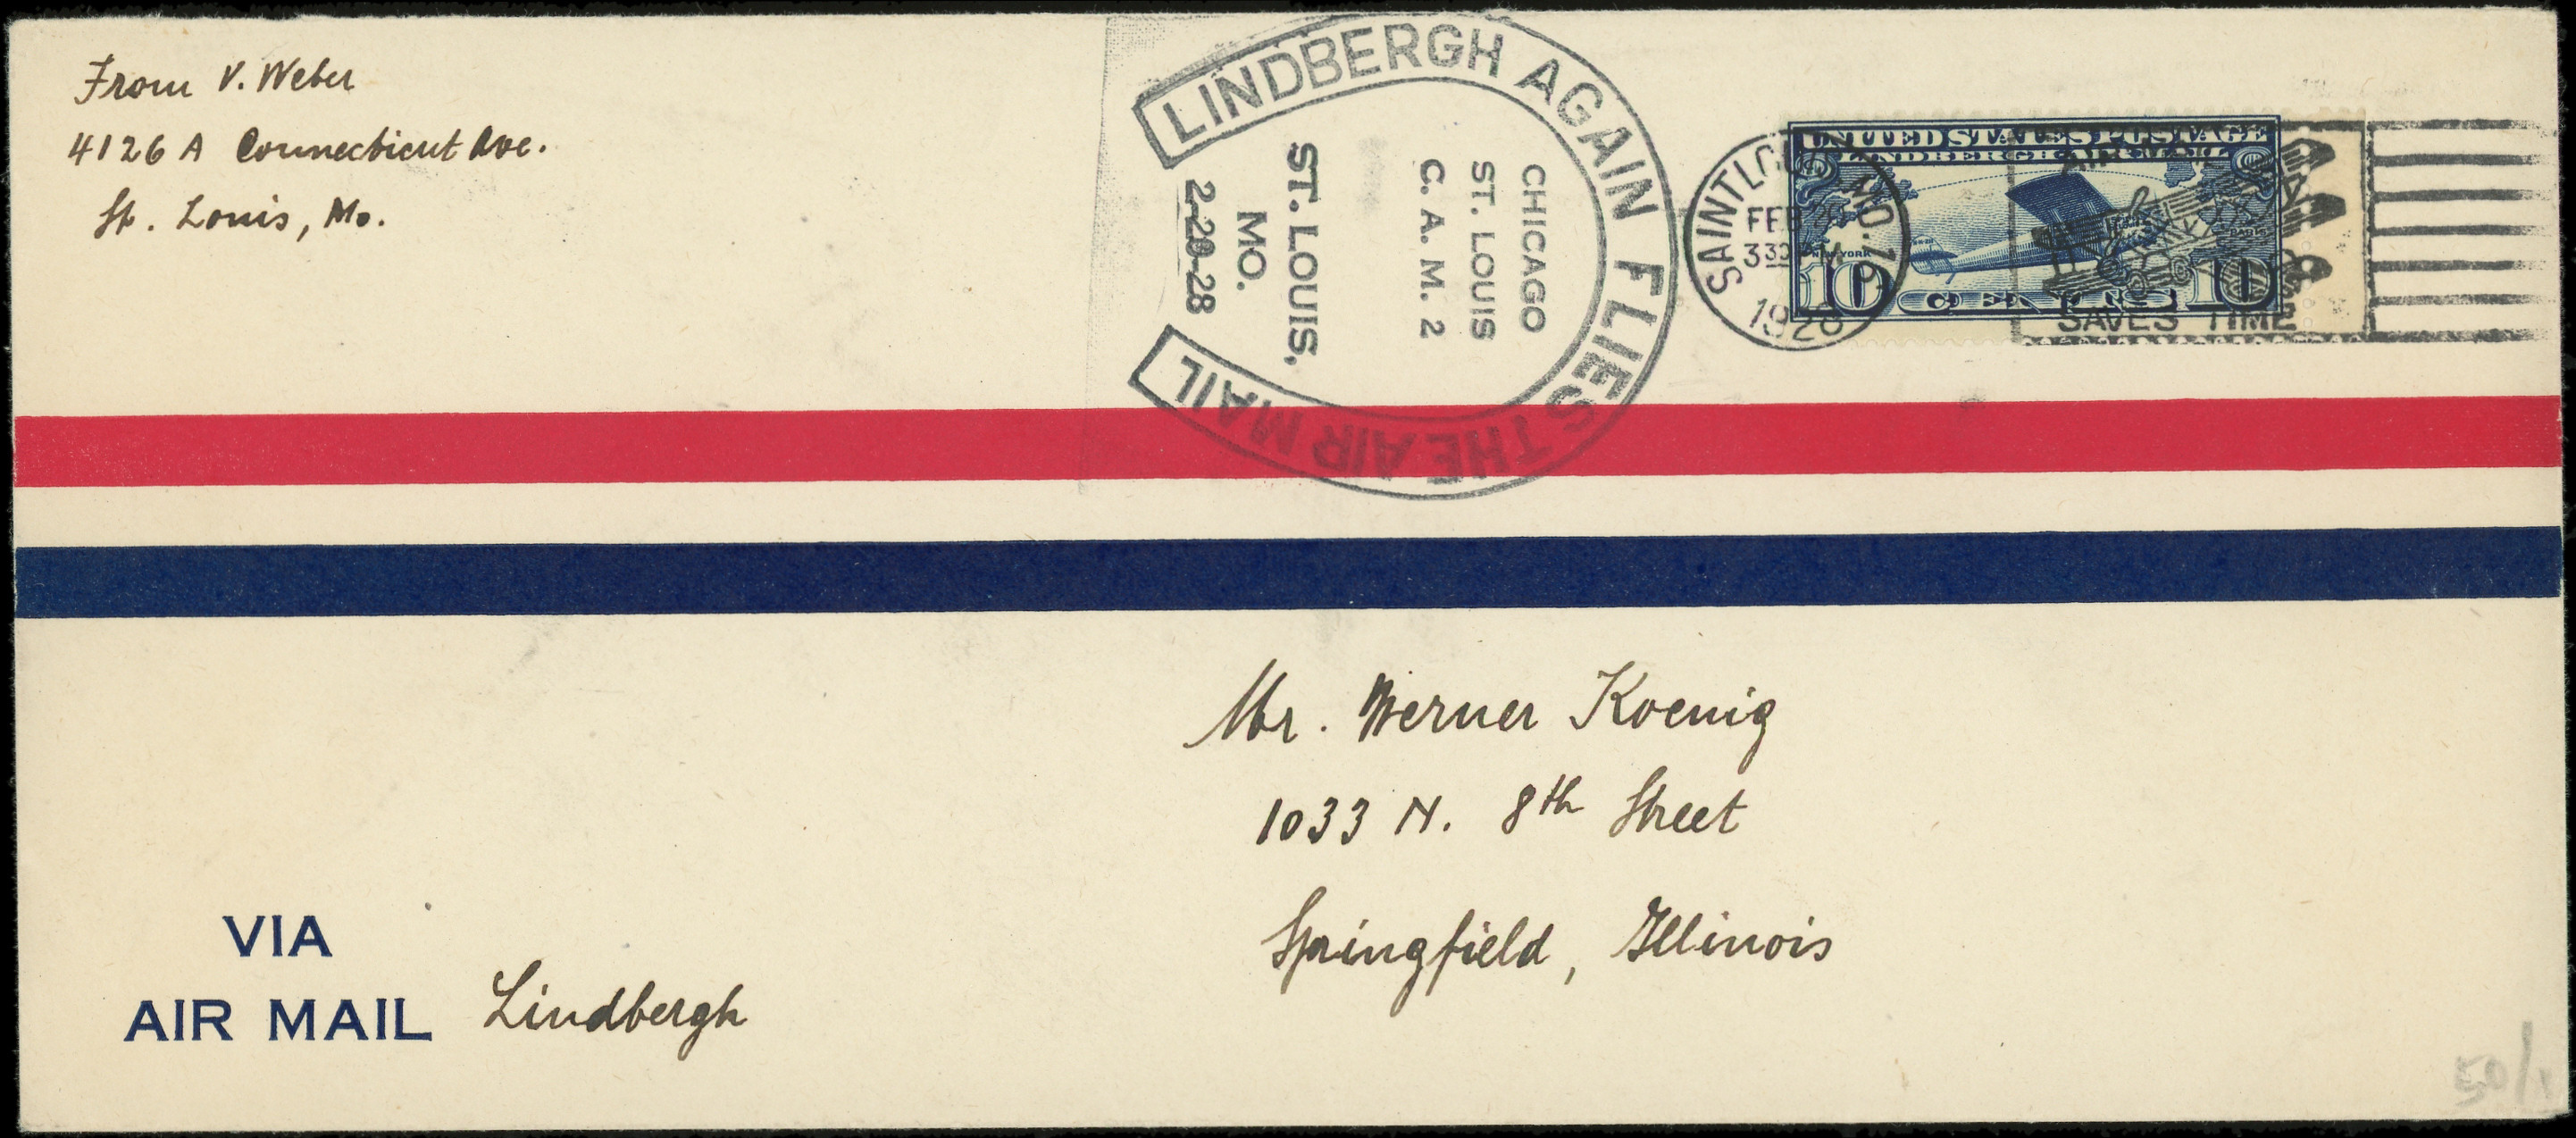 From V. Weber
4126 A Connecticut Ave.
St. Louis, Mo.
LINDBERGH AGAIN FLIES THE AIR MAIL
CHICAGO
ST. LOUIS
C. A. M. 2
ST. LOUIS,
MO.
2-20-28
SAINT LOUIS, MO. 1
FEB 20
3 30 AM
1928
UNITED STATES POSTAGE
LINDBERGH AIR MAIL
NEW YORK
PARIS
10 CENTS 10
AIR MAIL
SAVES TIME
Mr. Werner Koenig
1033 N. 8th Street
Springfield, Illinois
VIA
AIR MAIL Lindbergh